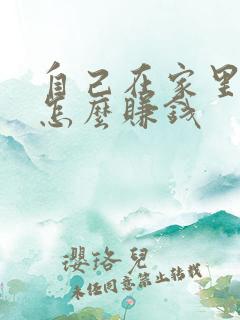 自己在家里
怎麼賺錢
瓔珞兒
未任同意禁止转载